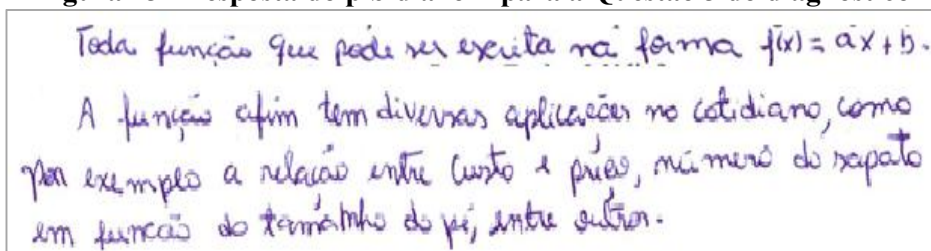 Toda função que pode ser escrita na forma f(x) = ax + b.
A função afim tem diversas aplicações no cotidiano, como
por exemplo a relação entre custo e preço, número do sapato
em função do tamanho do pé, entre outros.